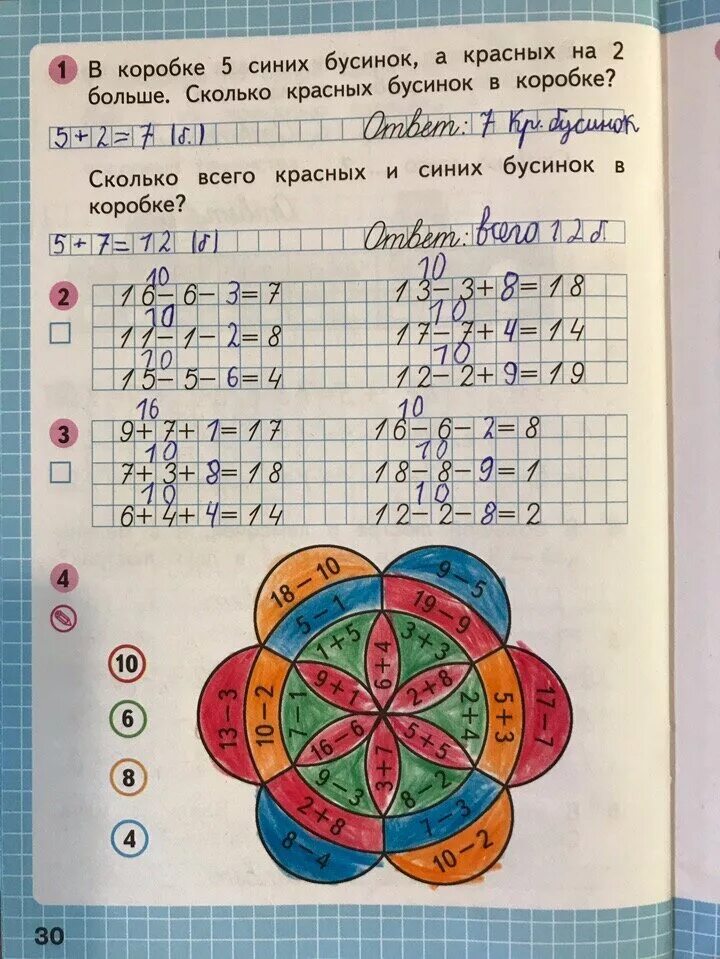 1 В коробке 5 синих бусинок, а красных на 2
больше. Сколько красных бусинок в коробке?
5+2=7 (б.) Ответ: 7 кр. бусинок
Сколько всего красных и синих бусинок в
коробке?
5+7=12 (б) Ответ: всего 12 б.
10 10
2 16-6-3=7 13-3+8=18
10 10
11-1-2=8 17-7+4=14
10 10
15-5-6=4 12-2+9=19
16 10
3 9+7+1=17 16-6-2=8
10 10
7+3+8=18 18-8-9=1
10 10
6+4+4=14 12-2-8=2
4
18-10 9-5
5-1 19-9
1+5 3+3
6+4
10
9+1 2+8
13-3 10-2 7-1 2+4 5+3 17-7
6
16-6 5+5
8
9-3 3+7 8-2
2+8 7-3
4
8-4 10-2
30